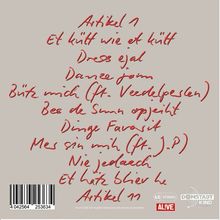 Artikel 1
Et kütt wie et kütt
Dress ejal
Danze jonn
Bütz mich (ft. Veedelperlen)
Bes de Sunn opjeiht
Dinge Favorit
Mer sin mih (ft. J.P)
Nie jedaach
Et hätz bliev he
Artikel 11
4 042564 253634
ALIVE
DOMSTADT
KIND